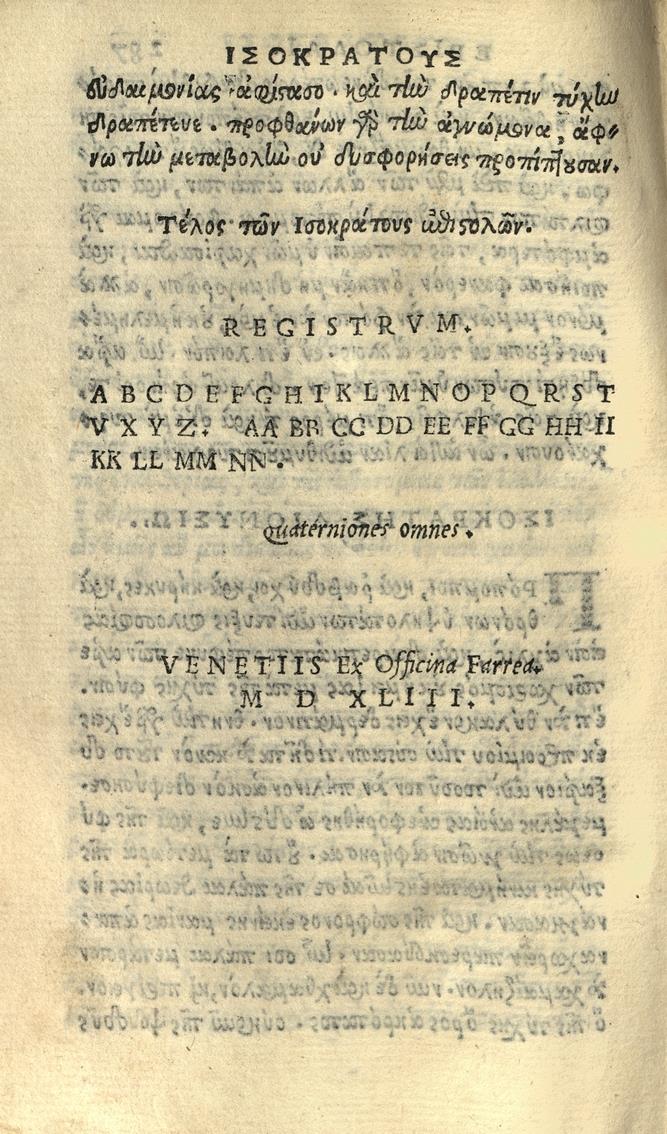 ΙΣΟΚΡΑΤΟΥΣ
εὐδαιμονίας ἀφίπασο. καὶ τὴν δραπέτιν τύχην
δραπέτευε. προφθάνων γὰρ τὴν ἀγνώμονα, ἄφ-
νω τὴν μεταβολὴν οὐ δυσφορήσεις προπίπτουσαν.
Τέλος τῶν Ισοκράτους ἐπιστολῶν.
REGISTRVM.
A B C D E F G H I K L M N O P Q R S T
V X Y Z. AA BB CC DD EE FF GG HH II
KK LL MM NN.
Quaterniones omnes.
VENETIIS Ex Officina Farrea.
M D XLIII.